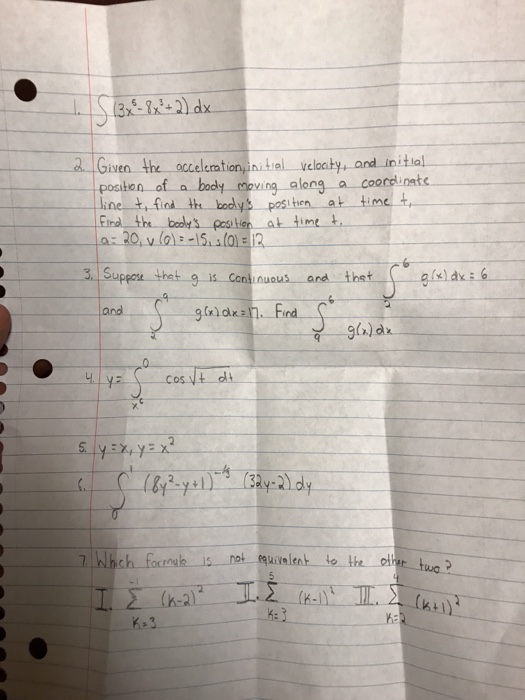 1. ∫(3x⁵-8x³+2) dx
2. Given the acceleration, initial velocity, and initial
position of a body moving along a coordinate
line t, find the body's position at time t,
Find the body's position at time t.
a=20, v(0)=-15, s(0)=12
3. Suppose that g is continuous and that ∫₂⁶ g(x)dx=6
and ∫₂⁹ g(x)dx=17. Find ∫₉⁶ g(x)dx
4. y= ∫ₓ⁶⁰ cos √t dt
5. y=x, y=x²
6. ∫₀¹ (8y²-y+1) (32y-2) dy
7. Which formula is not equivalent to the other two?
I. Σ (k-2)² II. Σ (k-1)² III. Σ (k+1)²
-1 5 4
K=3 K=3